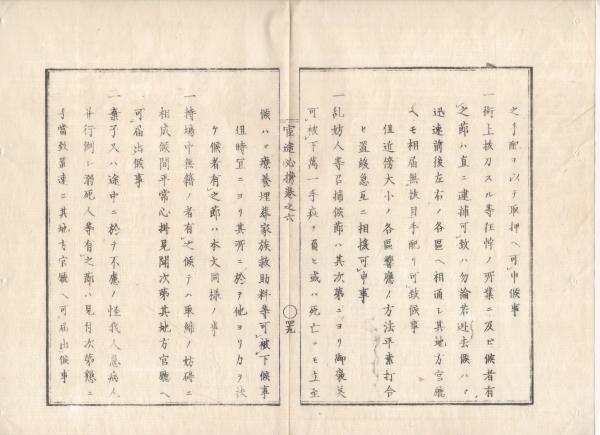 之手配ヲ以テ取押ヘ可申候事
一街上抜刀スル等狂悖ノ所業ニ及ヒ候者有
之節ハ直ニ逮捕可致ハ勿論若逃去候ハヽ
迅速前後左右ノ各區ヘ相通シ其地方官廳
ヘモ相届無抜目手配リ可致候事
但近傍大小ノ各區響應ノ方法平素打合
ヒ置緩急互ニ相援可申事
一乱妨人等召捕候節ハ其次第ニヨリ御褒美
可被下萬一手疵ヲ負ヒ或ハ死亡ニモ立至
官途必携巻之六
四九
候ハヽ療養埋葬家族救助料等可被下候事
但時宜ニヨリ其所ニ於テ他ヨリ力ヲ添
ケ候者有之節ハ本文同様ノ事
一持場中無籍ノ者有之候テハ取締ノ妨碍ニ
相成候間平常心掛見聞次第其地方官廳ヘ
可届出候事
一棄子又ハ途中ニ於テ不慮ノ怪我人急病人
并行倒レ溺死人等有之節ハ見付次第懇ニ
手當致置速ニ其地方官廳ヘ可届出候事